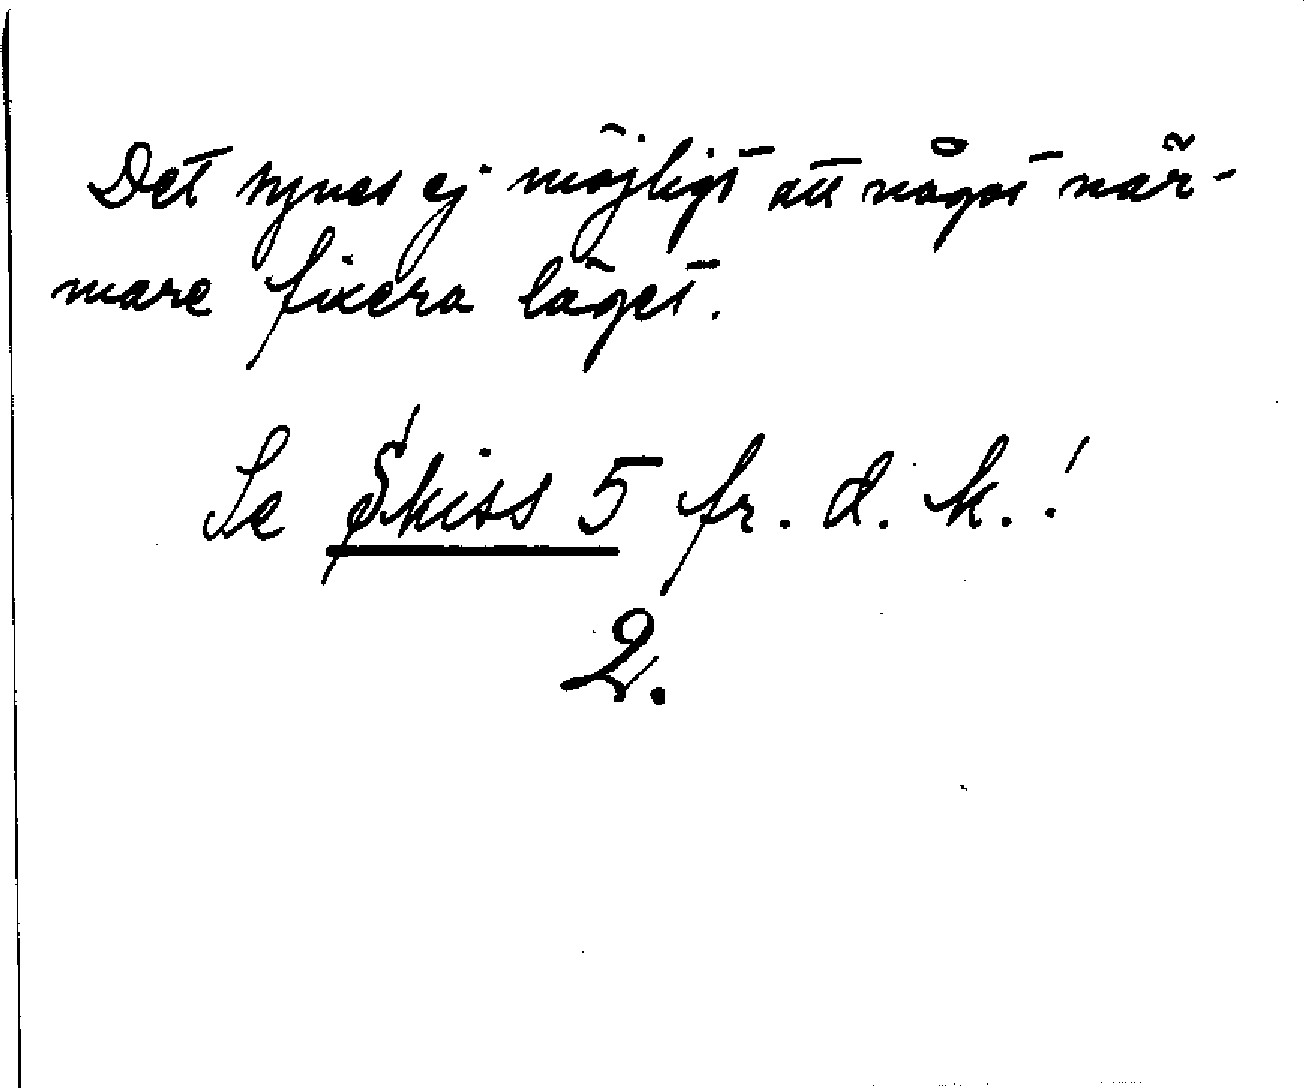 Det synes ej möjligt att något när-
mare fixera läget.
Se Skiss 5 fr. d. k.!
2.